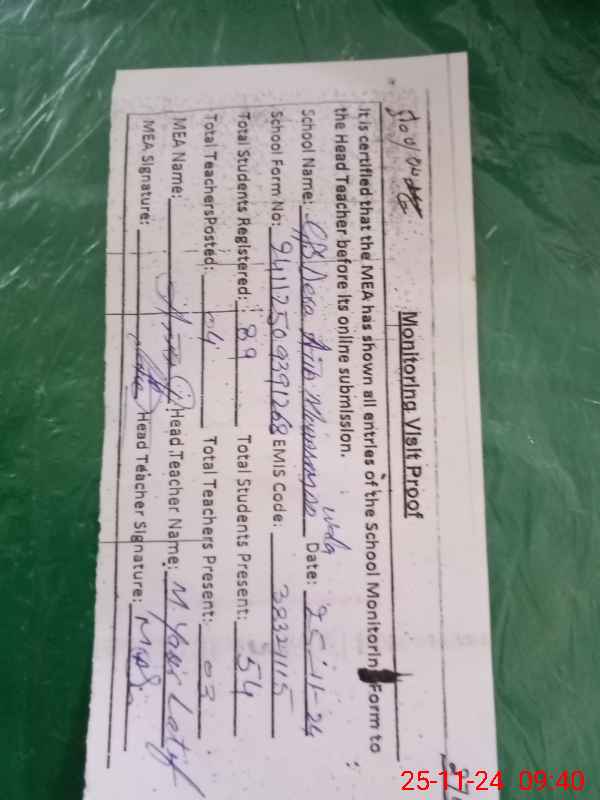 Monitoring Visit Proof
It is certified that the MEA has shown all entries of the School Monitorin Form to
the Head Teacher before its online submission.
School Name: Dera Date: 25-11-24
School Form No: EMIS Code:
Total Students Registered: 89 Total Students Present: 54
Total TeachersPosted: 04 Total Teachers Present: 03
MEA Name: Head Teacher Name: M. Yasir Latif
MEA Signature: Head Teacher Signature:
25-11-24 09:40